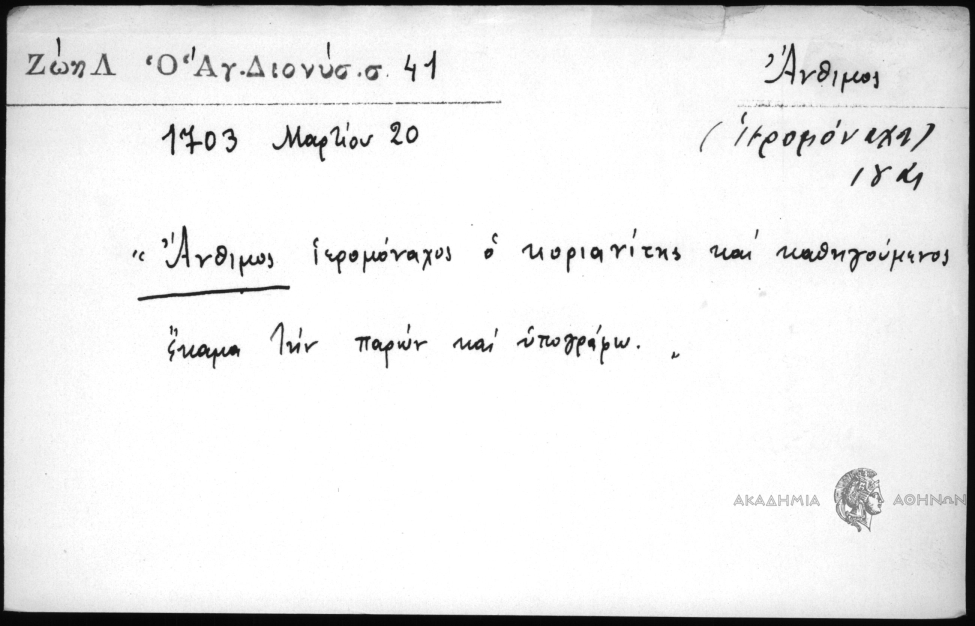 Ζώη Λ Ὁ Ἁγ. Διονύσ. σ. 41
Ἄνθιμος
1703 Μαρτίου 20
(ἱερομόναχ
"Ἄνθιμος ἱερομόναχος ὁ κοριανίτης καί καθηγούμενος
ἔκαμα τήν παρών καί ὑπογράφω."
ΑΚΑΔΗΜΙΑ ΑΘΗΝΩΝ